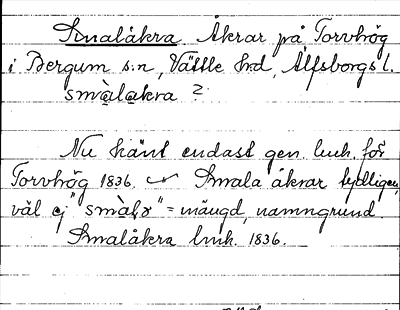 Smalåkra Åkrar på Torvhög
i Bergum s:n, Vättle hrd, Älfsborgs l.
smàlạkra ?
Nu känt endast gen. lmk. för
Torvhög 1836. Smala åkrar tydligen,
väl ej "smàlɂ" = mängd, namngrund.
Smalåkra lmk. 1836.